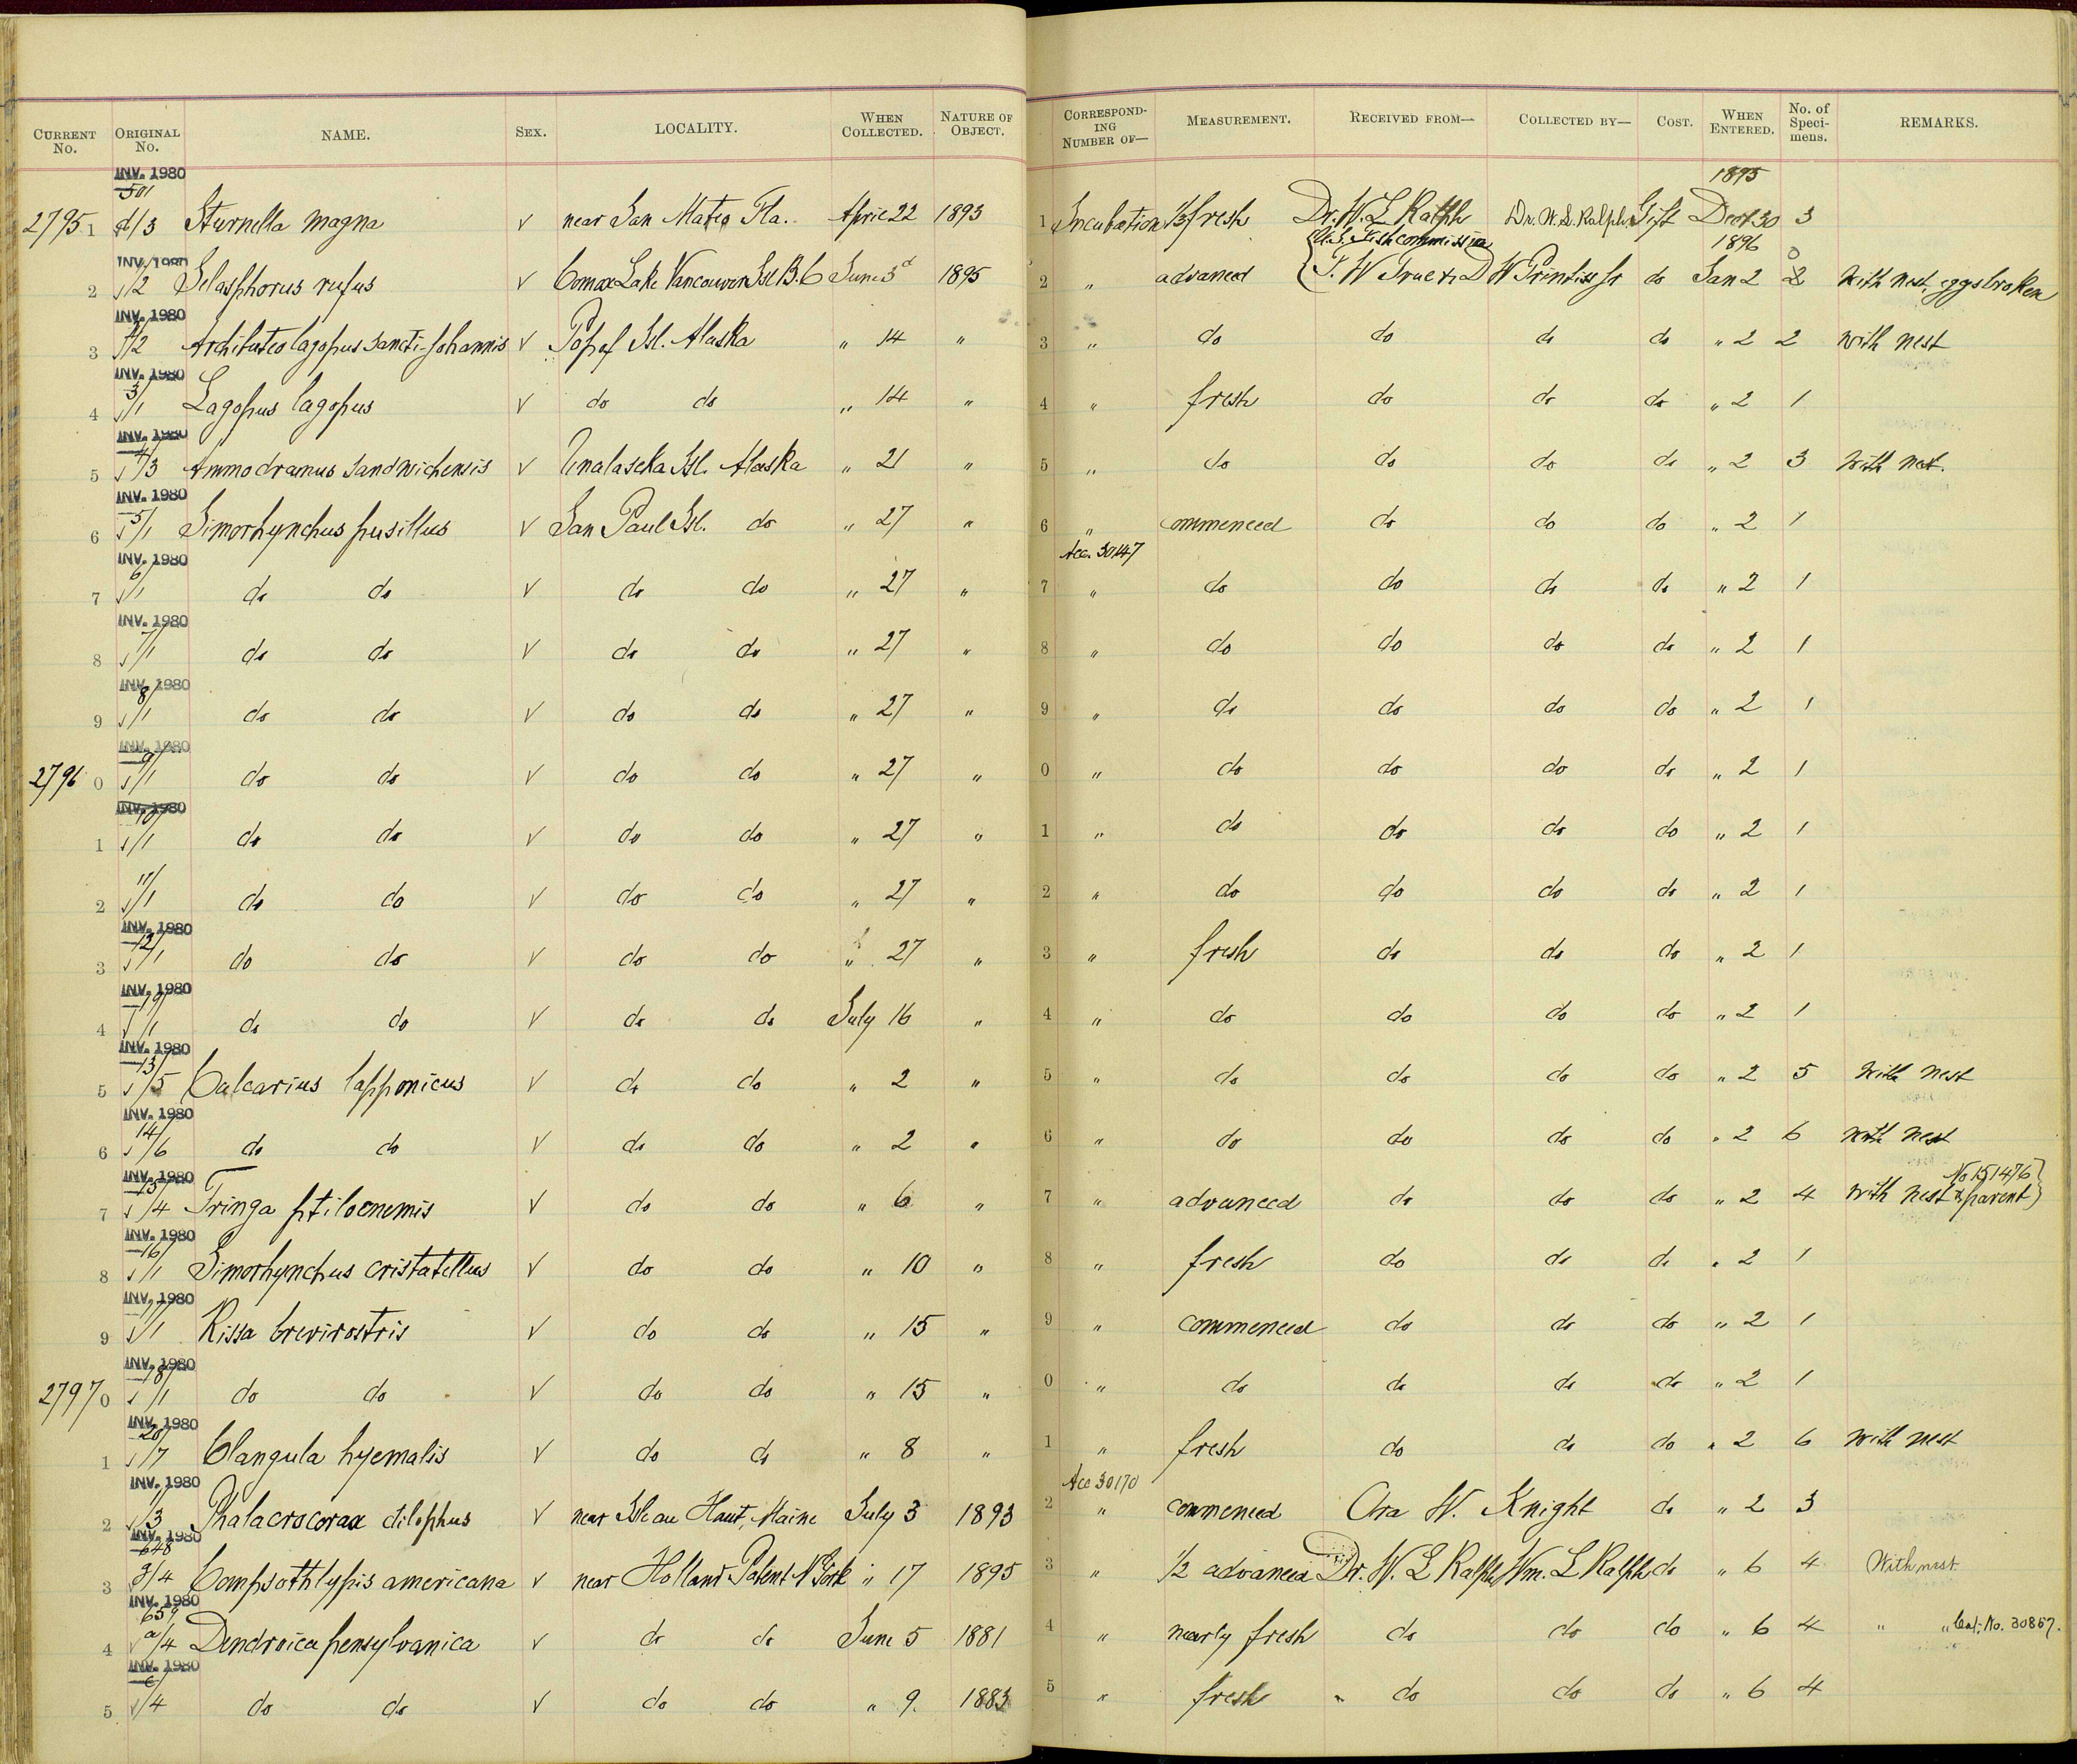 CURRENT No. ORIGINAL No. NAME. SEX. LOCALITY. WHEN COLLECTED. NATURE OF OBJECT. CORRESPONDING NUMBER OF— MEASUREMENT. RECEIVED FROM— COLLECTED BY— COST. WHEN ENTERED. No. of Specimens. REMARKS.
INV. 1980 1895
501
2795 1 d/3 Sturnella magna √ near San Mateo Fla. April 22 1893 1 Incubation 1/3 fresh Dr. W. L Ralph Dr. W. L. Ralph Gift Dec 30 3
INV. 1980 U.S. Fish commission 1896 0
2 1/2 Selasphorus rufus √ Comox Lake Vancouver Isl B.C June 3d 1895 2 " advanced { F. W True & D W Prentiss Jr do Jan 2 2 With nest, eggs broken
INV. 1980
3 2/2 Archibuteo lagopus sancti-johannis √ Popof Isl. Alaska " 14 " 3 " do do do do " 2 2 with nest
INV. 1980
4 3/1 Lagopus lagopus √ do do " 14 " 4 " fresh do do do " 2 1
INV. 1980
5 4/3 Ammodramus sandwichensis √ Unalaska Isl. Alaska " 21 " 5 " do do do do " 2 3 With nest.
INV. 1980
6 5/1 Simorhynchus pusillus √ San Paul Isl. do " 27 " 6 " commenced do do do " 2 1
INV. 1980 Acc. 30147
7 6/1 do do √ do do " 27 " 7 " do do do do " 2 1
INV. 1980
8 7/1 do do √ do do " 27 " 8 " do do do do " 2 1
INV. 1980
9 8/1 do do √ do do " 27 " 9 " do do do do " 2 1
INV. 1980
2796 0 9/1 do do √ do do " 27 " 0 " do do do do " 2 1
INV. 1980
1 10/1 do do √ do do " 27 " 1 " do do do do " 2 1
2 11/1 do do √ do do " 27 " 2 " do do do do " 2 1
INV. 1980
3 12/1 do do √ do do " 27 " 3 " fresh do do do " 2 1
INV. 1980
4 19/1 do do √ do do July 16 " 4 " do do do do " 2 1
INV. 1980
5 13/5 Calcarius lapponicus √ do do " 2 " 5 " do do do do " 2 5 With nest
INV. 1980
6 14/6 do do √ do do " 2 " 6 " do do do do " 2 6 with nest
INV. 1980 No 151476
7 15/4 Tringa ptilocnemis √ do do " 6 " 7 " advanced do do do " 2 4 with nest & parent }
INV. 1980
8 16/1 Simorhynchus cristatellus √ do do " 10 " 8 " fresh do do do " 2 1
INV. 1980
9 17/1 Rissa brevirostris √ do do " 15 " 9 " commenced do do do " 2 1
INV. 1980
2797 0 18/1 do do √ do do " 15 " 0 " do do do do " 2 1
INV. 1980
1 20/7 Clangula hyemalis √ do do " 8 " 1 " fresh do do do " 2 6 With nest
INV. 1980 Acc 30170
2 1/3 Phalacrocorax dilophus √ near Isle au Haut, Maine July 3 1893 2 " commenced Ora W. Knight do " 2 3
INV. 1980
648
3 g/4 Compsothlypis americana √ near Holland Patent N York " 17 1895 3 " 1/2 advanced Dr. W. L Ralph Wm. L Ralph do " 6 4 With nest
INV. 1980
659
4 a/4 Dendroica pensylvanica √ do do June 5 1881 4 " nearly fresh do do do " 6 4 " " Cat. No. 30857.
INV. 1980
5 c/4 do do √ do do " 9. 1883 5 " fresh " do do do " 6 4